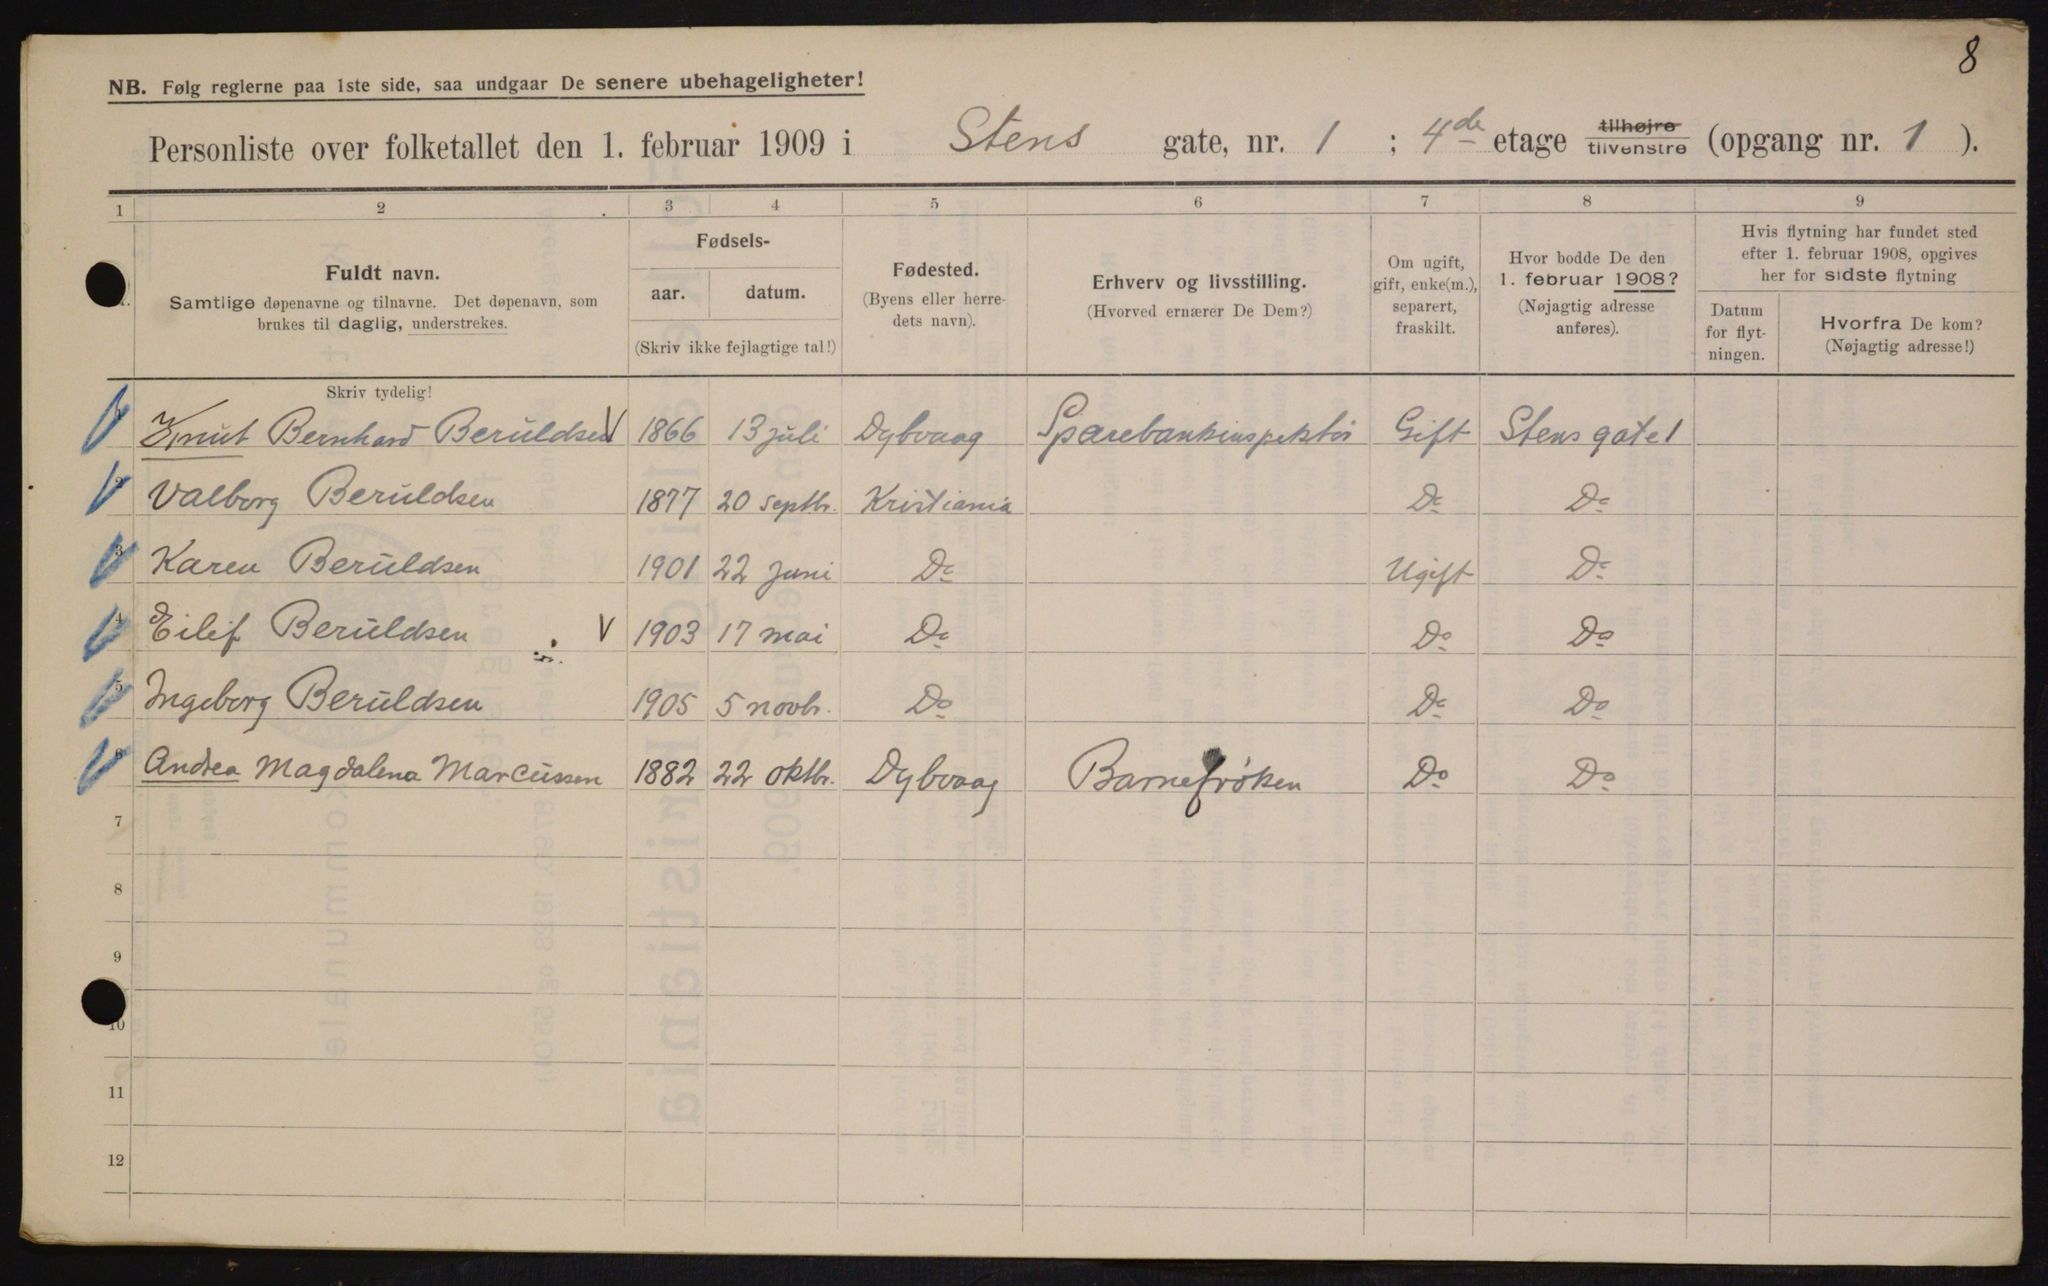 8
NB. Følg reglerne paa 1ste side, saa undgaar De senere ubehageligheter!
Personliste over folketallet den 1. februar 1909 i Stens gate, nr. 1 ; 4de etage tilhøjre tilvenstre (opgang nr. 1 ).
1 2 3 4 5 6 7 8 9
Fuldt navn.
Samtlige døpenavne og tilnavne. Det døpenavn, som
brukes til daglig, understrekes.
Fødsels-
aar. datum.
(Skriv ikke fejlagtige tal!)
Fødested.
(Byens eller herre-
dets navn).
Erhverv og livsstilling.
(Hvorved ernærer De Dem?)
Om ugift,
gift, enke(m.),
separert,
fraskilt.
Hvor bodde De den
1. februar 1908?
(Nøjagtig adresse
anføres).
Hvis flytning har fundet sted
efter 1. februar 1908, opgives
her for sidste flytning
Datum
for flyt-
ningen.
Hvorfra De kom?
(Nøjagtig adresse!)
Skriv tydelig!
Knut Bernhard Beruldsen V 1866 13 juli Dybvaag Sparebankinspektør Gift Stens gate 1
2 Valborg Beruldsen 1877 20 septbr. Kristiania Do Do
3 Karen Beruldsen 1901 22 juni Do Ugift Do
4 Eilif Beruldsen V 1903 17 mai Do Do Do
5 Ingeborg Beruldsen 1905 5 novbr. Do Do Do
6 Andrea Magdalena Marcussen 1882 22 oktbr. Dybvaag Barnefrøken Do Do
7
8
9
10
11
12